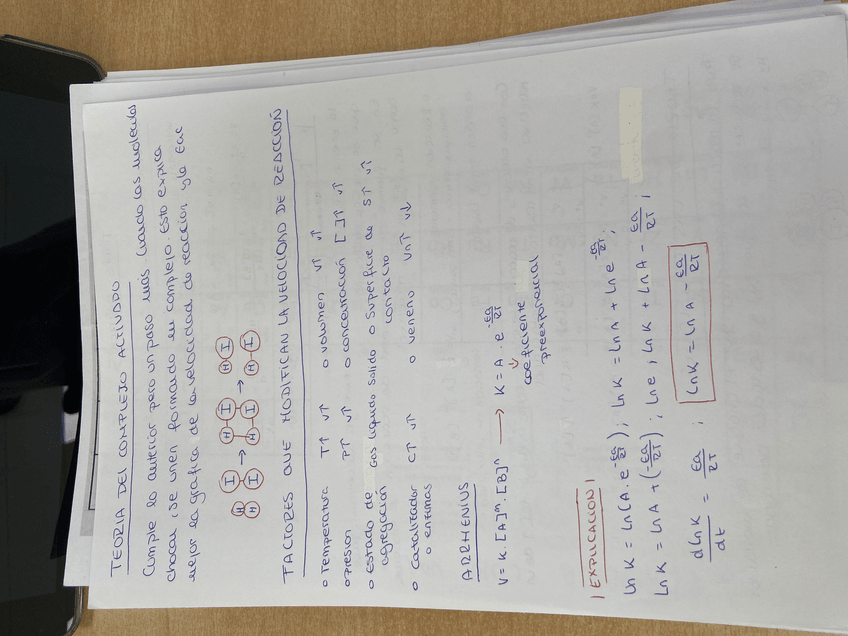 TEORIA DEL COMPLEJO ACTIVADO
Cumple lo anterior pero un paso más. Cuando las moléculas
chocan, se unen formando un complejo. Esto explica
mejor la grafica de la velocidad de reaccion y la Eac
H I H I H I
H I H I H I
FACTORES QUE MODIFICAN LA VELOCIDAD DE REACCIÓN
o Temperatura T↑ v↑ o volumen v↑ v↑
o Presion P↑ v↑ o concentración [ ]↑ v↑
o Estado de agregación gas líquido solido o Superficie de contacto S↑ v↑
o Catalizador o enzimas C↑ v↑ o veneno vn↑ v↓
ARRHENIUS
V = K · [A]ⁿ · [B]ⁿ → K = A · e^-Ea/RT
coeficiente
preexponencial
| EXPLICACION |
Ln K = Ln (A · e^-Ea/RT) ; Ln K = Ln A + Ln e^-Ea/RT ;
Ln K = Ln A + (-Ea/RT) ; Ln e ; Ln K + Ln A - Ea/RT ;
dLnK/dt = Ea/RT ; Ln K = Ln A - Ea/RT